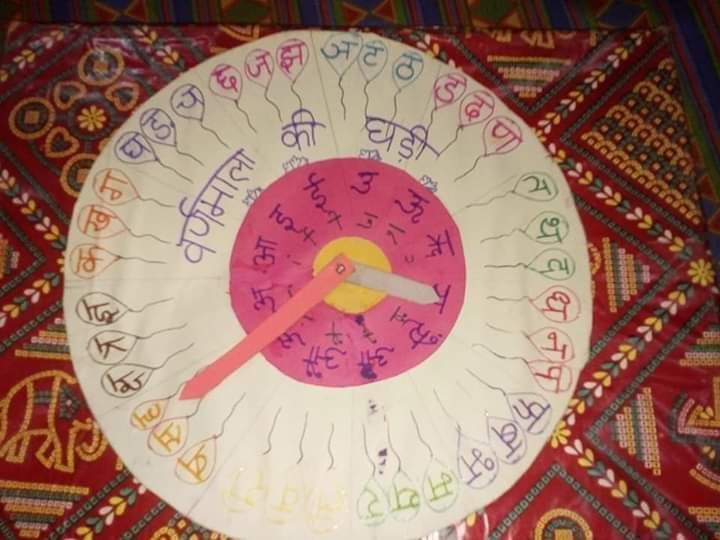 वर्णमाला की घड़ी
क ख ग
घ ङ च
छ ज झ
ञ ट ठ
ड ढ ण
त थ द
ध न प
फ ब भ
म य
स ह
क्ष त्र ज्ञ
अ आ इ ई उ ऊ ऋ ए ऐ